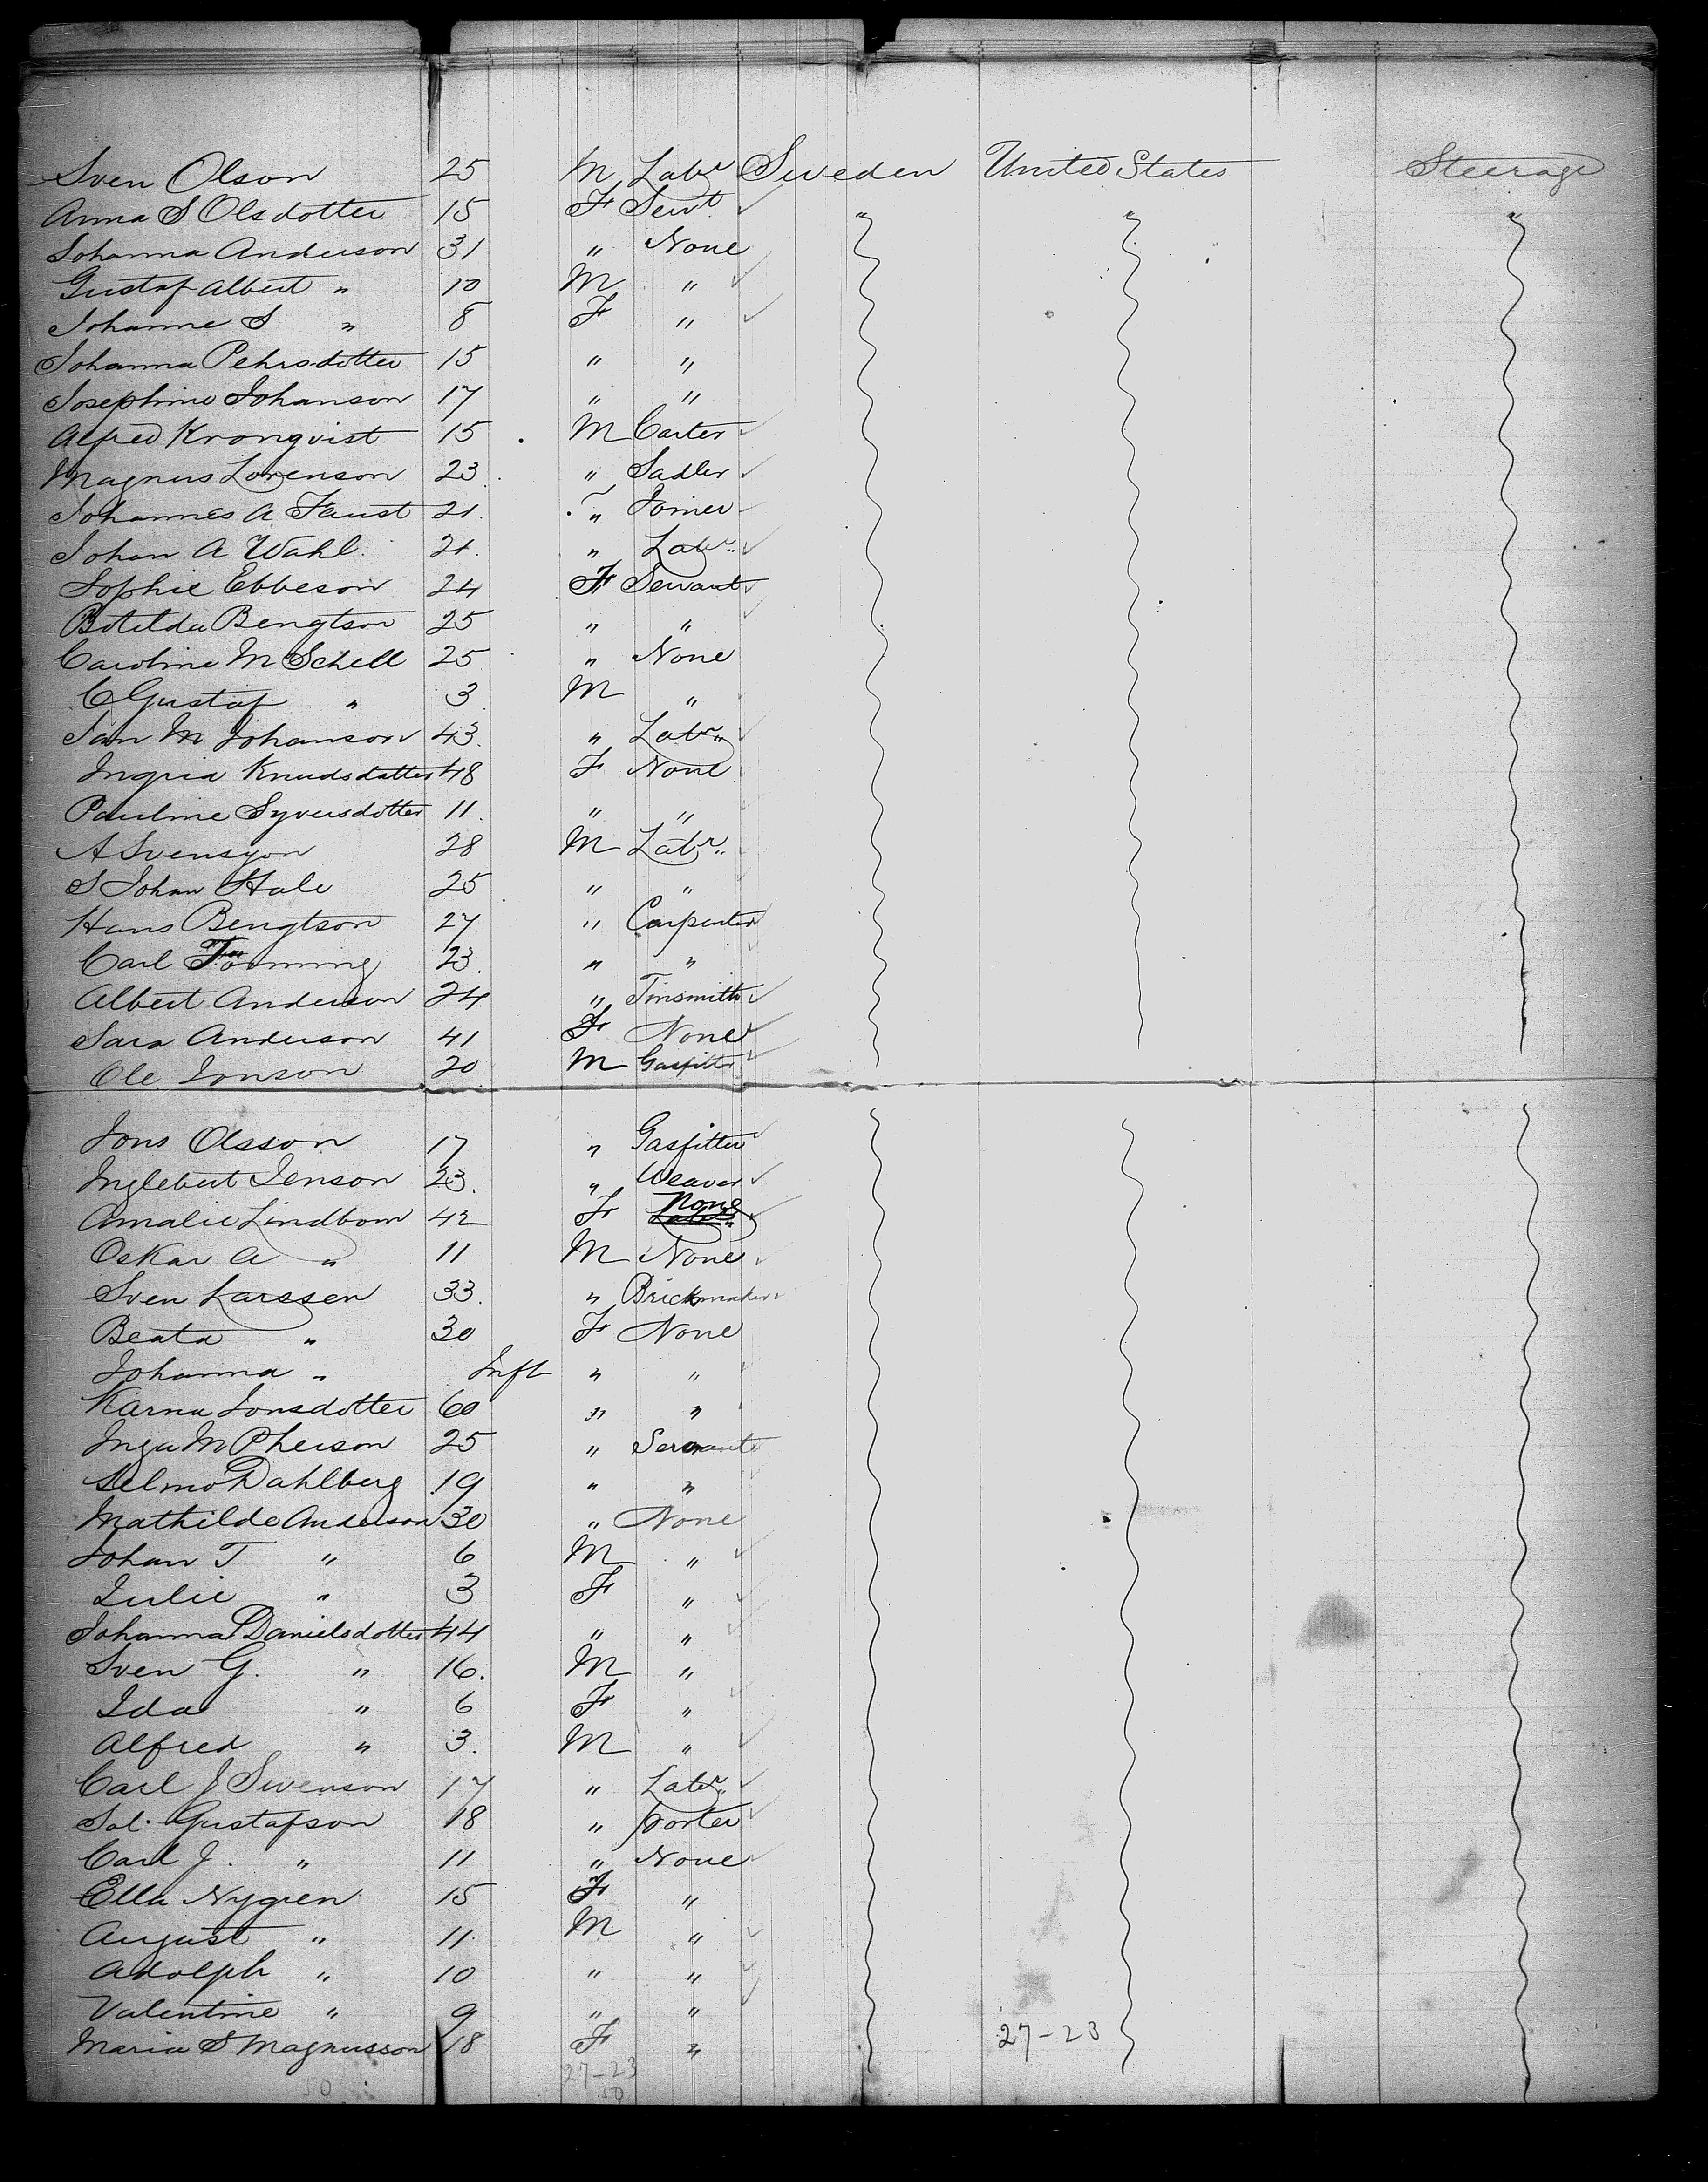 Sven Olson 25 M Labr Sweden United States Steerage
Anna S Olsdotter 15 F Servt " " "
Johanna Anderson 31 " None
Gustaf Albert " 10 M "
Johanne S " 8 F "
Johanna Pehrsdotter 15 " "
Josephine Johanson 17 " "
Alfred Kronqvist 15 M Carter
Magnus Lorenson 23 " Sadler
Johannes A Faust 21 " Joiner
Johan A Wahl 21 " Labr
Sophie Ebbeson 24 F Servant
Botilda Bengtson 25 " "
Caroline M Schell 25 " None
C Gustaf " 3 M "
Jan M Johanson 43 " Labr
Ingria Knudsdatter 48 F None
Pauline Syversdotter 11 " "
A Svensyon 28 M Labr
S Johan Hale 25 " "
Hans Bengtson 27 " Carpenter
Carl 23 " "
Albert Anderson 24 " Tinsmith
Sara Anderson 41 F None
Ole Jonson 20 M Gasfitter
Jons Olsson 17 " Gasfitter
Inglebert Jenson 23 " Weaver
Amalie Lindbom 42 F None
Oskar A " 11 M None
Sven Larssen 33 " Brickmaker
Beata " 30 F None
Johanna " Inft " "
Karna Jonsdotter 60 " "
Inga M Pherson 25 " Servante
Selmo Dahlberg 19 " "
Mathilde Anderson 30 " None
Johan T " 6 M "
Julie " 3 F "
Johanna Danielsdotter 44 " "
Sven G. " 16. M "
Ida " 6 F "
Alfred " 3. M "
Carl J Swenson 17 " Labr
Sal. Gustafson 18 " porter
Carl J. " 11 " None
Ella Nygren 15 F "
August " 11 M "
Adolph " 10 " "
Valentine " 9 " "
Maria S Magnusson 18 F " 27-23
50 27-23
50